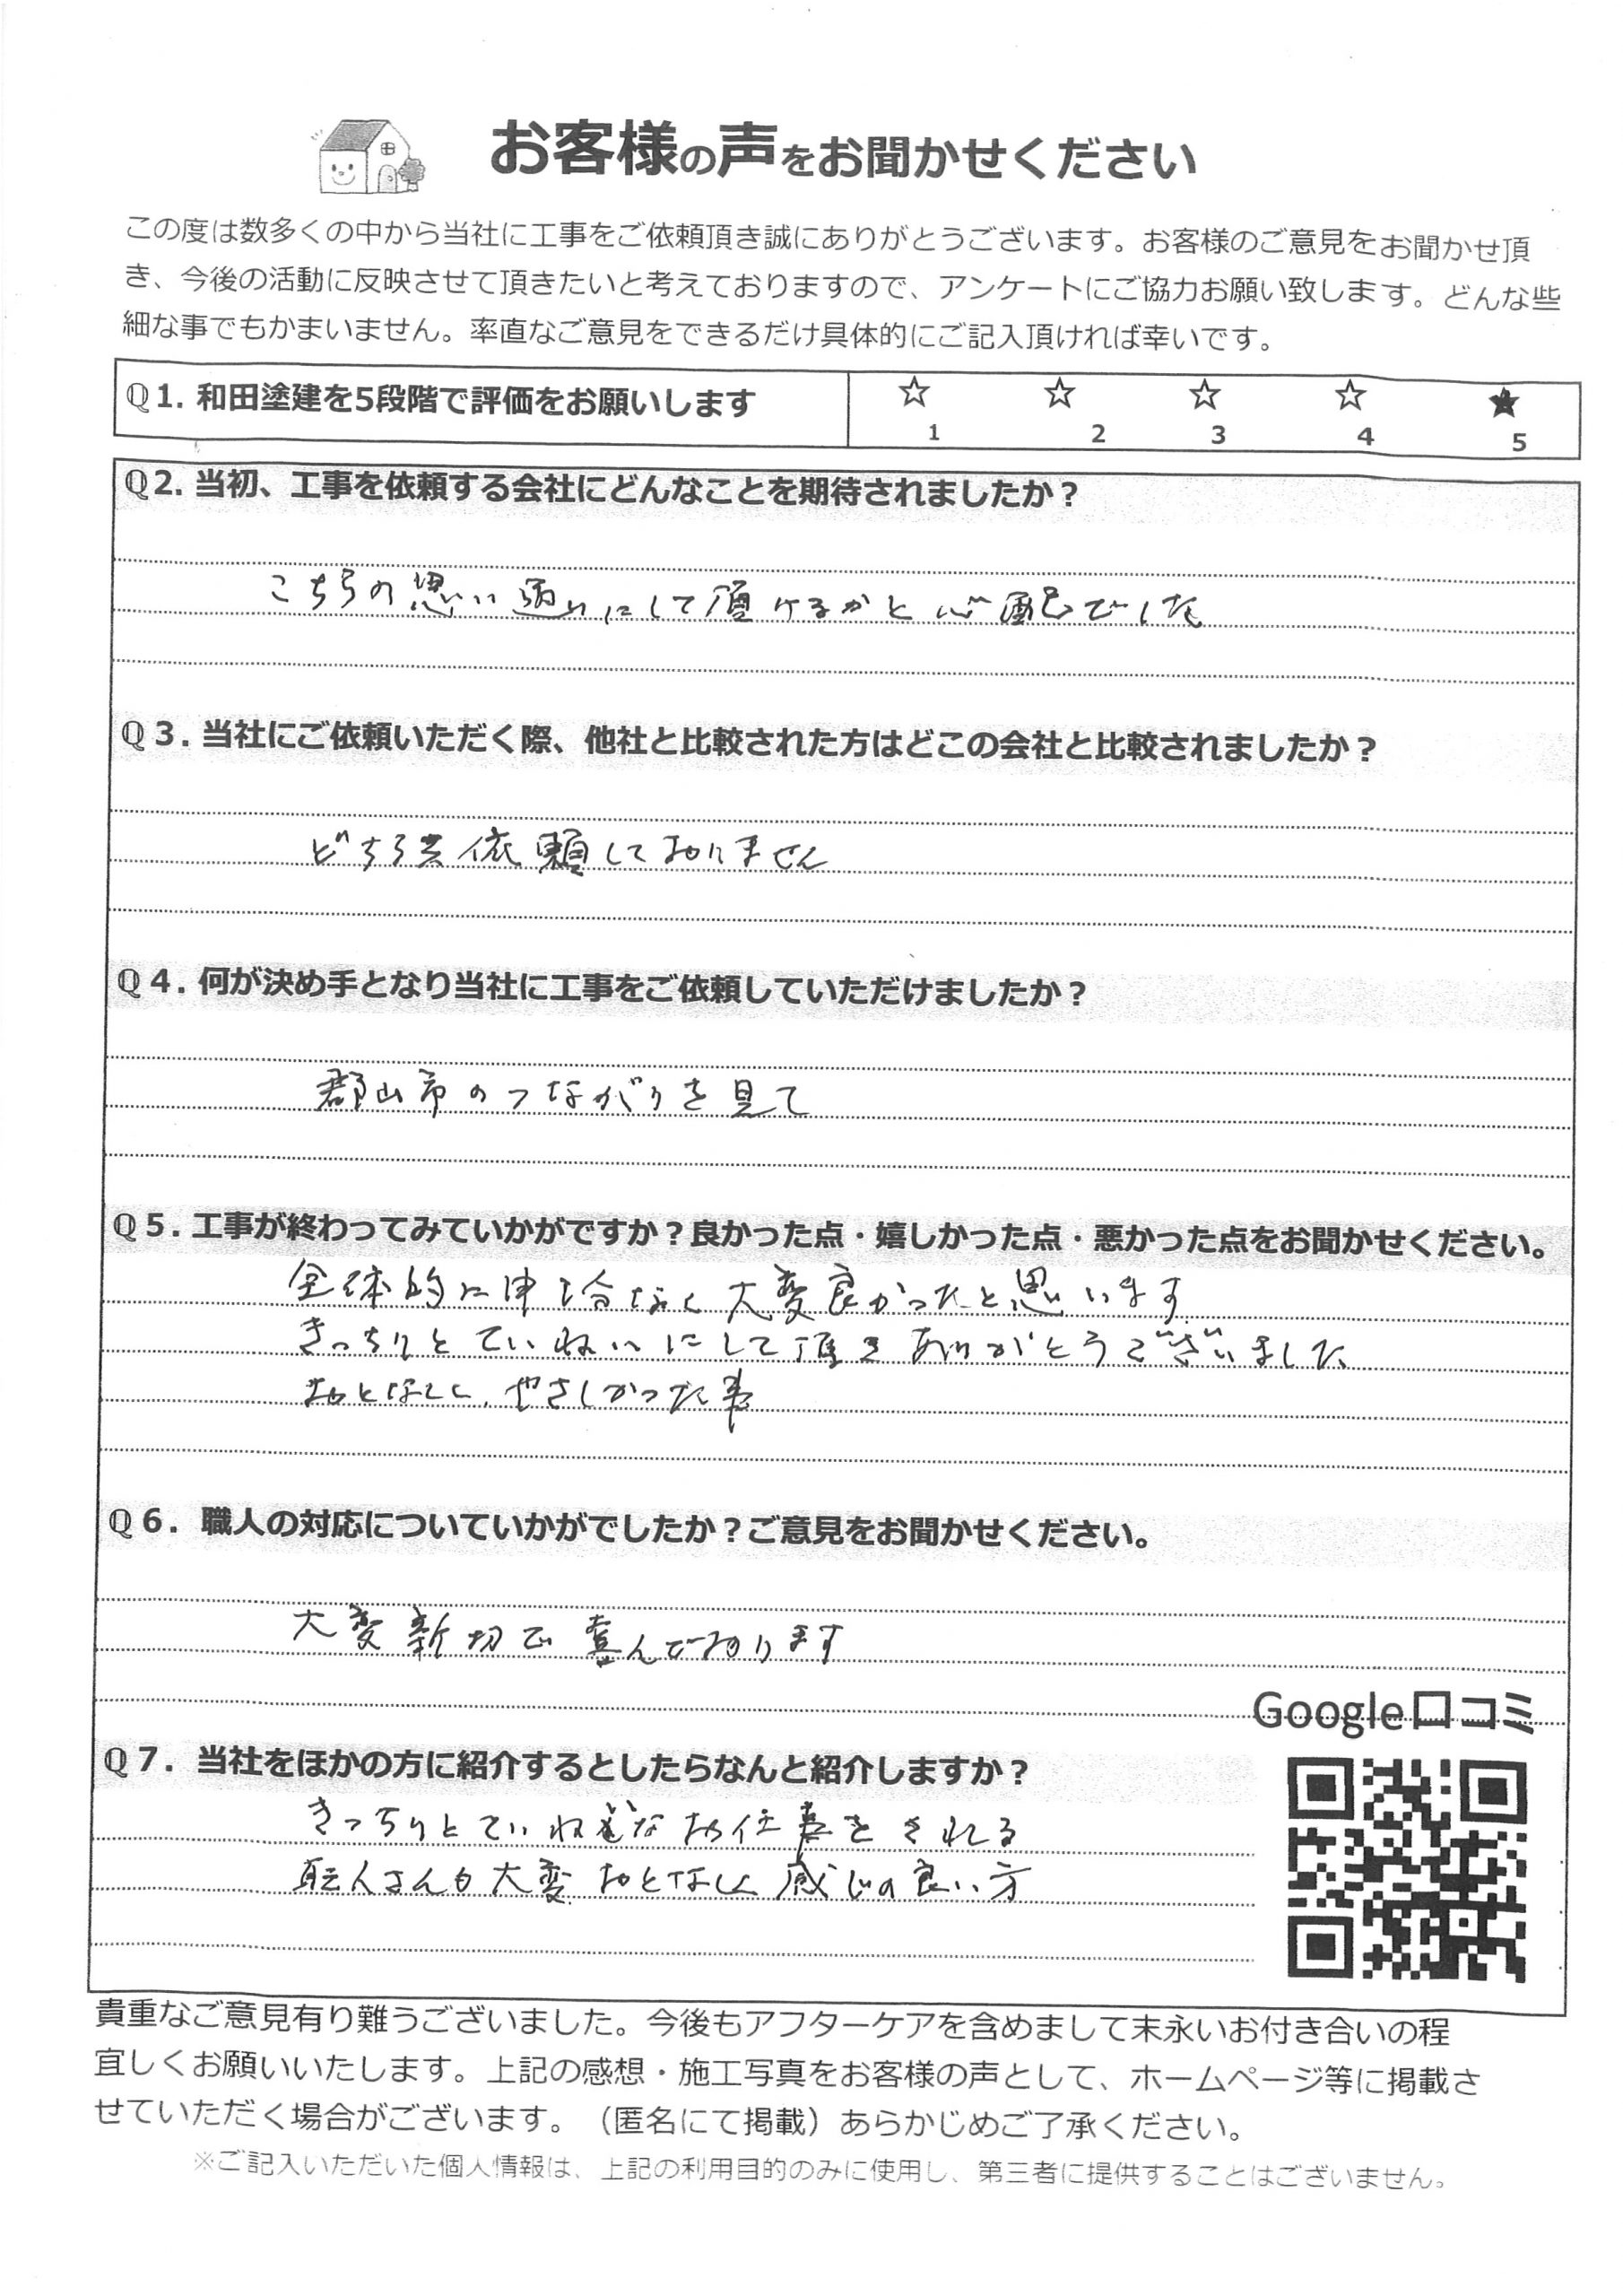 お客様の声をお聞かせください
この度は数多くの中から当社に工事をご依頼頂き誠にありがとうございます。お客様のご意見をお聞かせ頂
き、今後の活動に反映させて頂きたいと考えておりますので、アンケートにご協力お願い致します。どんな些
細な事でもかまいません。率直なご意見をできるだけ具体的にご記入頂ければ幸いです。
Q1. 和田塗建を5段階で評価をお願いします
☆ ☆ ☆ ☆ ★
1 2 3 4 5
Q2. 当初、工事を依頼する会社にどんなことを期待されましたか？
こちらの思い通りにして頂けるかと心配でした
Q3. 当社にご依頼いただく際、他社と比較された方はどこの会社と比較されましたか？
どちら共依頼しておりません
Q4. 何が決め手となり当社に工事をご依頼していただけましたか？
郡山市のつながりを見て
Q5. 工事が終わってみていかがですか？良かった点・嬉しかった点・悪かった点をお聞かせください。
全体的に申し分なく大変良かったと思います
きっちりとていねいにして頂きありがとうございました
おとなしく、やさしかった事
Q6. 職人の対応についていかがでしたか？ご意見をお聞かせください。
大変親切で喜んでおります
Google口コミ
Q7. 当社をほかの方に紹介するとしたらなんと紹介しますか？
きっちりとていねいなお仕事をされる
職人さんも大変おとなしく感じの良い方
貴重なご意見有り難うございました。今後もアフターケアを含めまして末永いお付き合いの程
宜しくお願いいたします。上記の感想・施工写真をお客様の声として、ホームページ等に掲載さ
せていただく場合がございます。（匿名にて掲載）あらかじめご了承ください。
※ご記入いただいた個人情報は、上記の利用目的のみに使用し、第三者に提供することはございません。